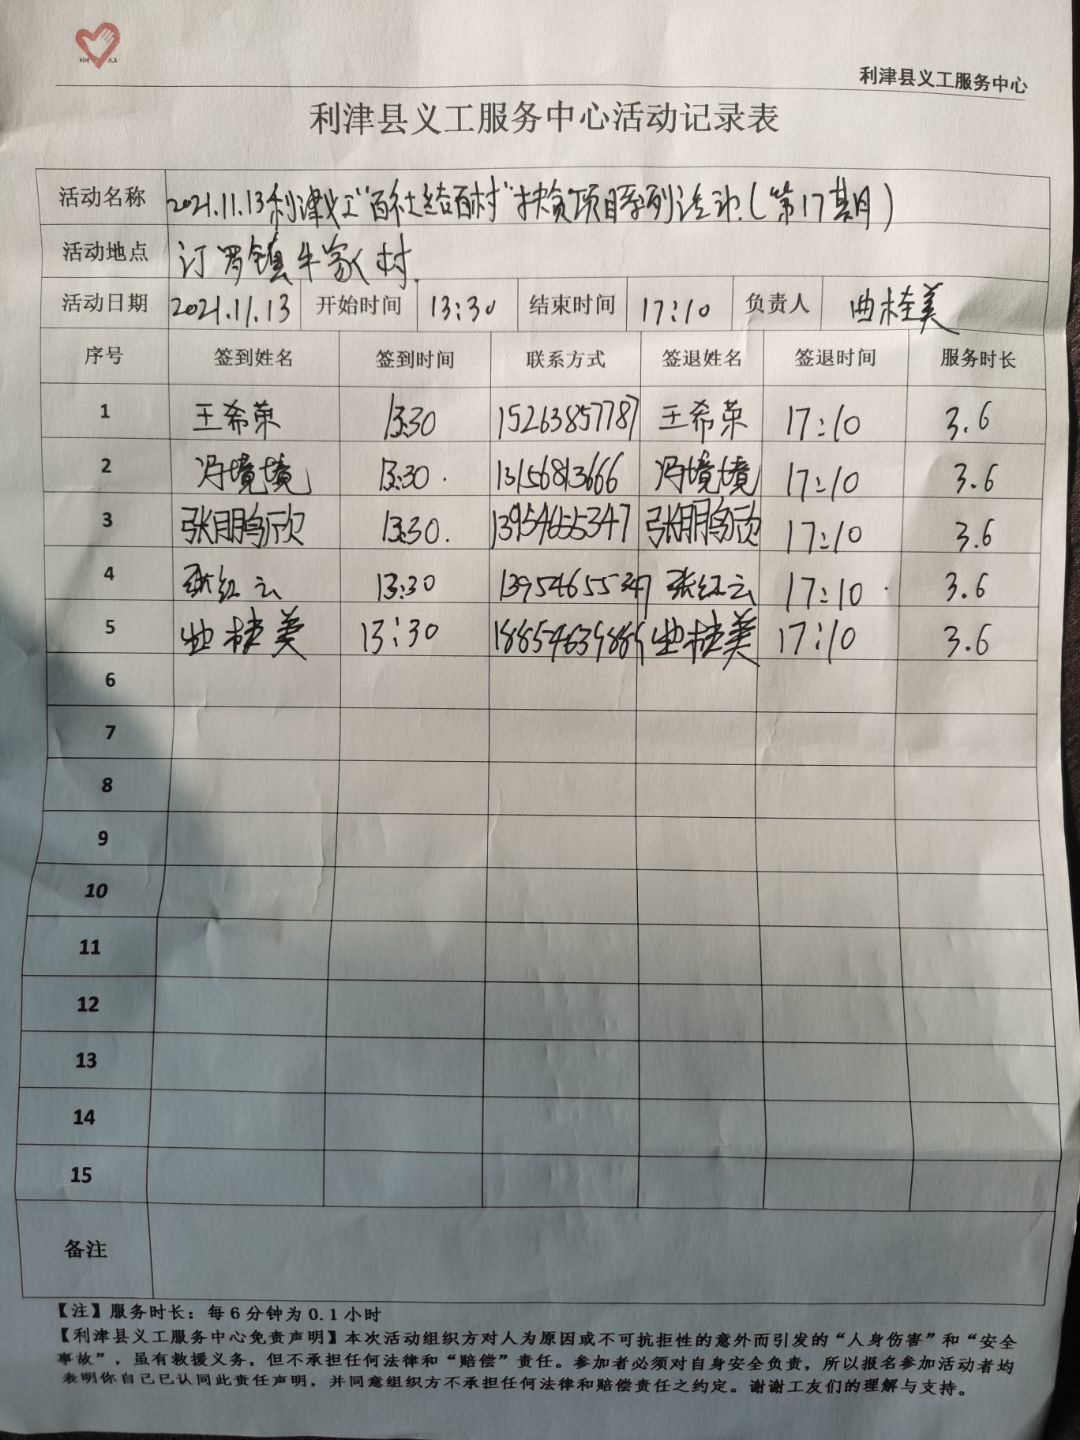 利津县义工服务中心
利津县义工服务中心活动记录表
活动名称 2021.11.13利津义工"百社结百村"扶贫项目系列活动(第17期)
活动地点 汀罗镇牛家村
活动日期 2021.11.13 开始时间 13:30 结束时间 17:10 负责人 曲桂美
序号 签到姓名 签到时间 联系方式 签退姓名 签退时间 服务时长
1 王希荣 13:30 15263857787 王希荣 17:10 3.6
2 冯境境 13:30 13156813666 冯境境 17:10 3.6
3 张鹏欣 13:30 13954655347 张鹏欣 17:10 3.6
4 张红云 13:30 13954655347 张红云 17:10 3.6
5 曲桂美 13:30 曲桂美 17:10 3.6
6
7
8
9
10
11
12
13
14
15
备注
【注】服务时长：每6分钟为0.1小时
【利津县义工服务中心免责声明】本次活动组织方对人为原因或不可抗拒性的意外而引发的“人身伤害”和“安全
事故”，虽有救援义务，但不承担任何法律和“赔偿”责任。参加者必须对自身安全负责，所以报名参加活动者均
表明你自己已认同此责任声明，并同意组织方不承担任何法律和赔偿责任之约定。谢谢工友们的理解与支持。